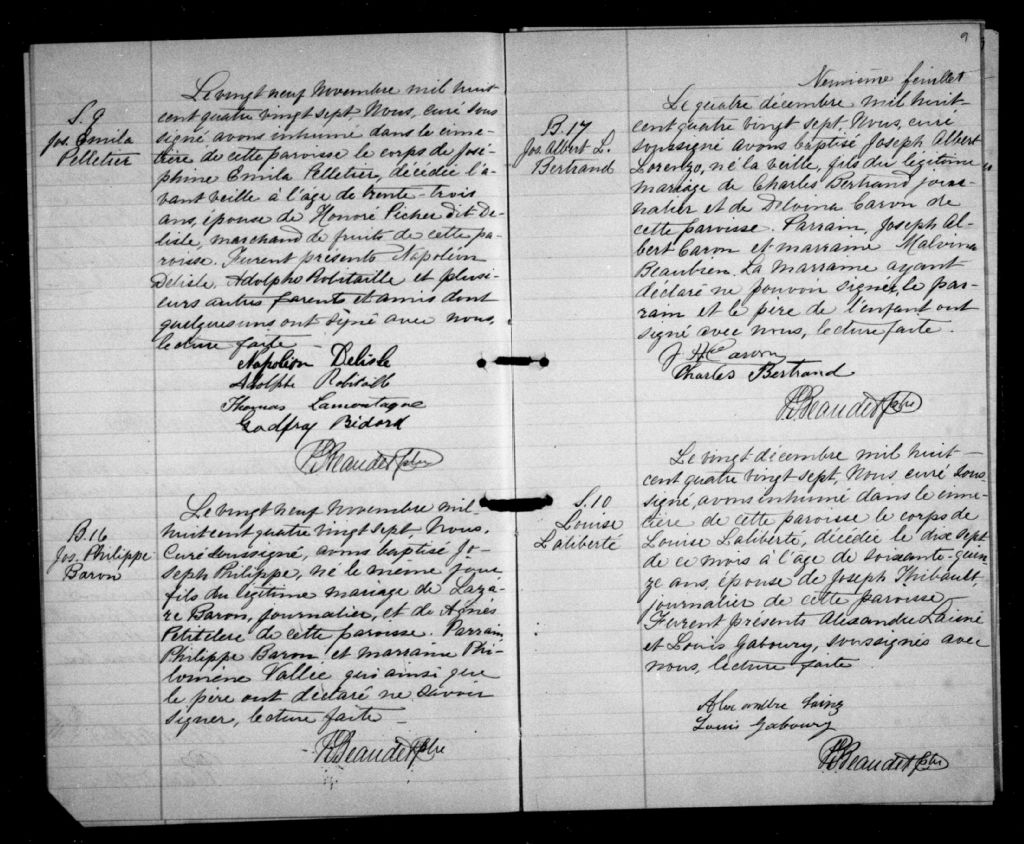 S. 9
Jos. Emila
Pelletier
Le vingt neuf Novembre mil huit
cent quatre vingt sept. Nous, curé sous
signé avons inhumé dans le cime-
tière de cette paroisse le corps de José-
phine Emila Pelletier, décédée l'a-
vant veille à l'âge de trente-trois
ans, épouse de Honoré Picher dit De-
lisle, marchand de fruits de cette pa-
roisse. Furent présents Napoléon
Delisle, Adolphe Robitaille et plusi-
eurs autres parents et amis dont
quelques uns ont signé avec nous,
lecture faite -
Napoléon Delisle
Adolphe Robitaille
Thomas Lamontagne
Godfray Bidard
Beaudet ptre
B. 16
Jos. Philippe
Baron
Le vingt neuf Novembre mil-
huit cent quatre vingt sept, Nous,
Curé soussigné, avons baptisé Jo-
seph Philippe, né le même jour
fils du légitime mariage de Laza-
re Baron, journalier, et de Agnès
Petitclerc de cette paroisse. Parrain
Philippe Baron et marraine Phi-
lomène Vallée qui ainsi que
le père ont déclaré ne savoir
signer, lecture faite -
Beaudet ptre
9
Neuvième feuillet
B. 17
Jos. Albert L.
Bertrand
Le quatre décembre mil huit-
cent quatre vingt sept, Nous, curé
soussigné avons baptisé Joseph Albert
Lorenzo, né la veille, fils du légitime
mariage de Charles Bertrand jour-
nalier et de Delvina Caron de
cette paroisse. Parrain, Joseph Al-
bert Caron et marraine Malvina
Beaubien. La marraine ayant
déclaré ne pouvoir signer, le par-
rain et le père de l'enfant ont
signé avec nous, lecture faite.
J H Caron
Charles Bertrand
Beaudet ptre
S. 10
Louise
Laliberté
Le vingt décembre mil huit-
cent quatre vingt sept, Nous curé sous-
signé, avons inhumé dans le cime-
tière de cette paroisse le corps de
Louise Laliberté, décédée le dix sept
de ce mois à l'âge de soixante-quin-
ze ans, épouse de Joseph Thibault
journalier de cette paroisse -
Furent présents Alexandre Lainé
et Louis Gaboury, soussignés avec
nous, lecture faite
Alexandre Lainé
Louis Gaboury
Beaudet ptre